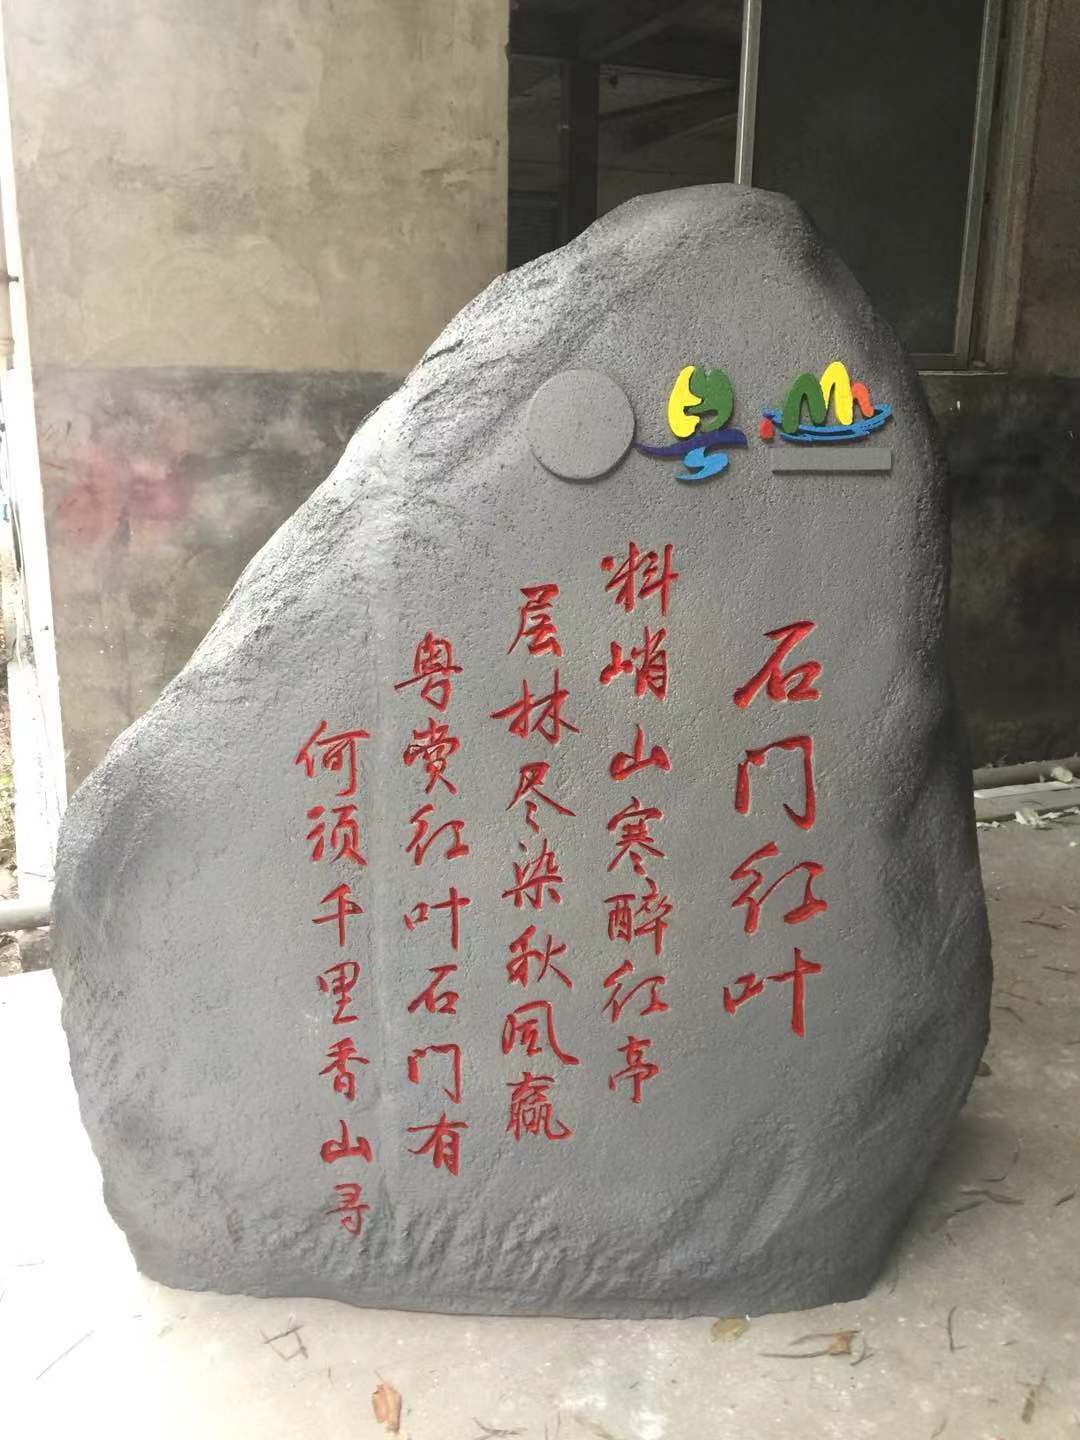 石门红叶
料峭山寒醉红亭
层林尽染秋风赢
粤赏红叶石门有
何须千里香山寻